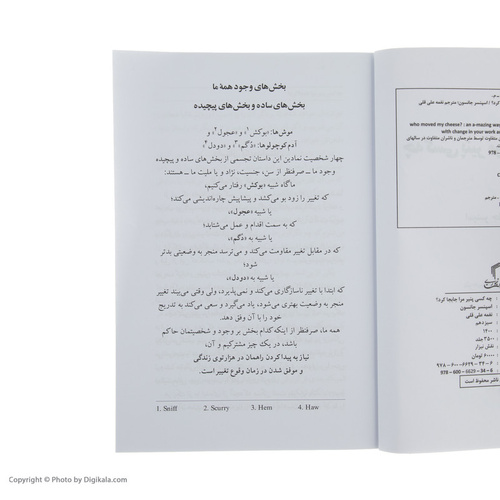 بخش‌های وجود همهٔ ما
بخش‌های ساده و بخش‌های پیچیده
موش‌ها: «بوکش¹» و «عجول²» و
آدم‌کوچولوها: «دُگم³» و «دودل⁴»
چهار شخصیت نمادین این داستان تجسمی از بخش‌های ساده و پیچیده
وجود ما ــ صرفنظر از سن، جنسیت، نژاد و یا ملیت ما ــ هستند:
ماگاه شبیه «بوکش» رفتار می‌کنیم،
که تغییر را زود بو می‌کشد و پیشاپیش چاره‌اندیشی می‌کند؛
یا شبیه «عجول»،
که به سمت اقدام و عمل می‌شتابد؛
یا شبیه به «دُگم»،
که در مقابل تغییر مقاومت می‌کند و می‌ترسد منجر به وضعیتی بدتر
شود؛
یا شبیه به «دودل»،
که ابتدا با تغییر ناسازگاری می‌کند و نمی‌پذیرد، ولی وقتی می‌بیند تغییر
منجر به وضعیت بهتری می‌شود، یاد می‌گیرد و سعی می‌کند به تدریج
خود را با آن وفق دهد.
همه ما، صرفنظر از اینکه کدام بخش بر وجود و شخصیتمان حاکم
باشد، در یک چیز مشترکیم و آن،
نیاز به پیدا کردن راهمان در هزارتوی زندگی
و موفق شدن در زمان وقوع تغییر است.
1. Sniff 2. Scurry 3. Hem 4. Haw
کرد؟ / اسپنسر جانسون؛ مترجم نغمه علی قلی
who moved my cheese? : an a-mazing way
with change in your work an
متفاوت توسط مترجمان و ناشران متفاوت در سالهای
978 -
، مترجم
: چه کسی پنیر مرا جابجا کرد؟
: اسپنسر جانسون
: نغمه علی قلی
: سیزدهم
: ۱۴۰۰
: ۳۵۰۰ جلد
: نقش نیزار
: ۶۰۰۰۰ تومان
۹۷۸ – ۶۰۰ – ۶۶۲۹ – ۳۴ – ۶
978 – 600 – 6629 – 34 – 6
ناشر محفوظ است
Copyright © Photo by Digikala.com